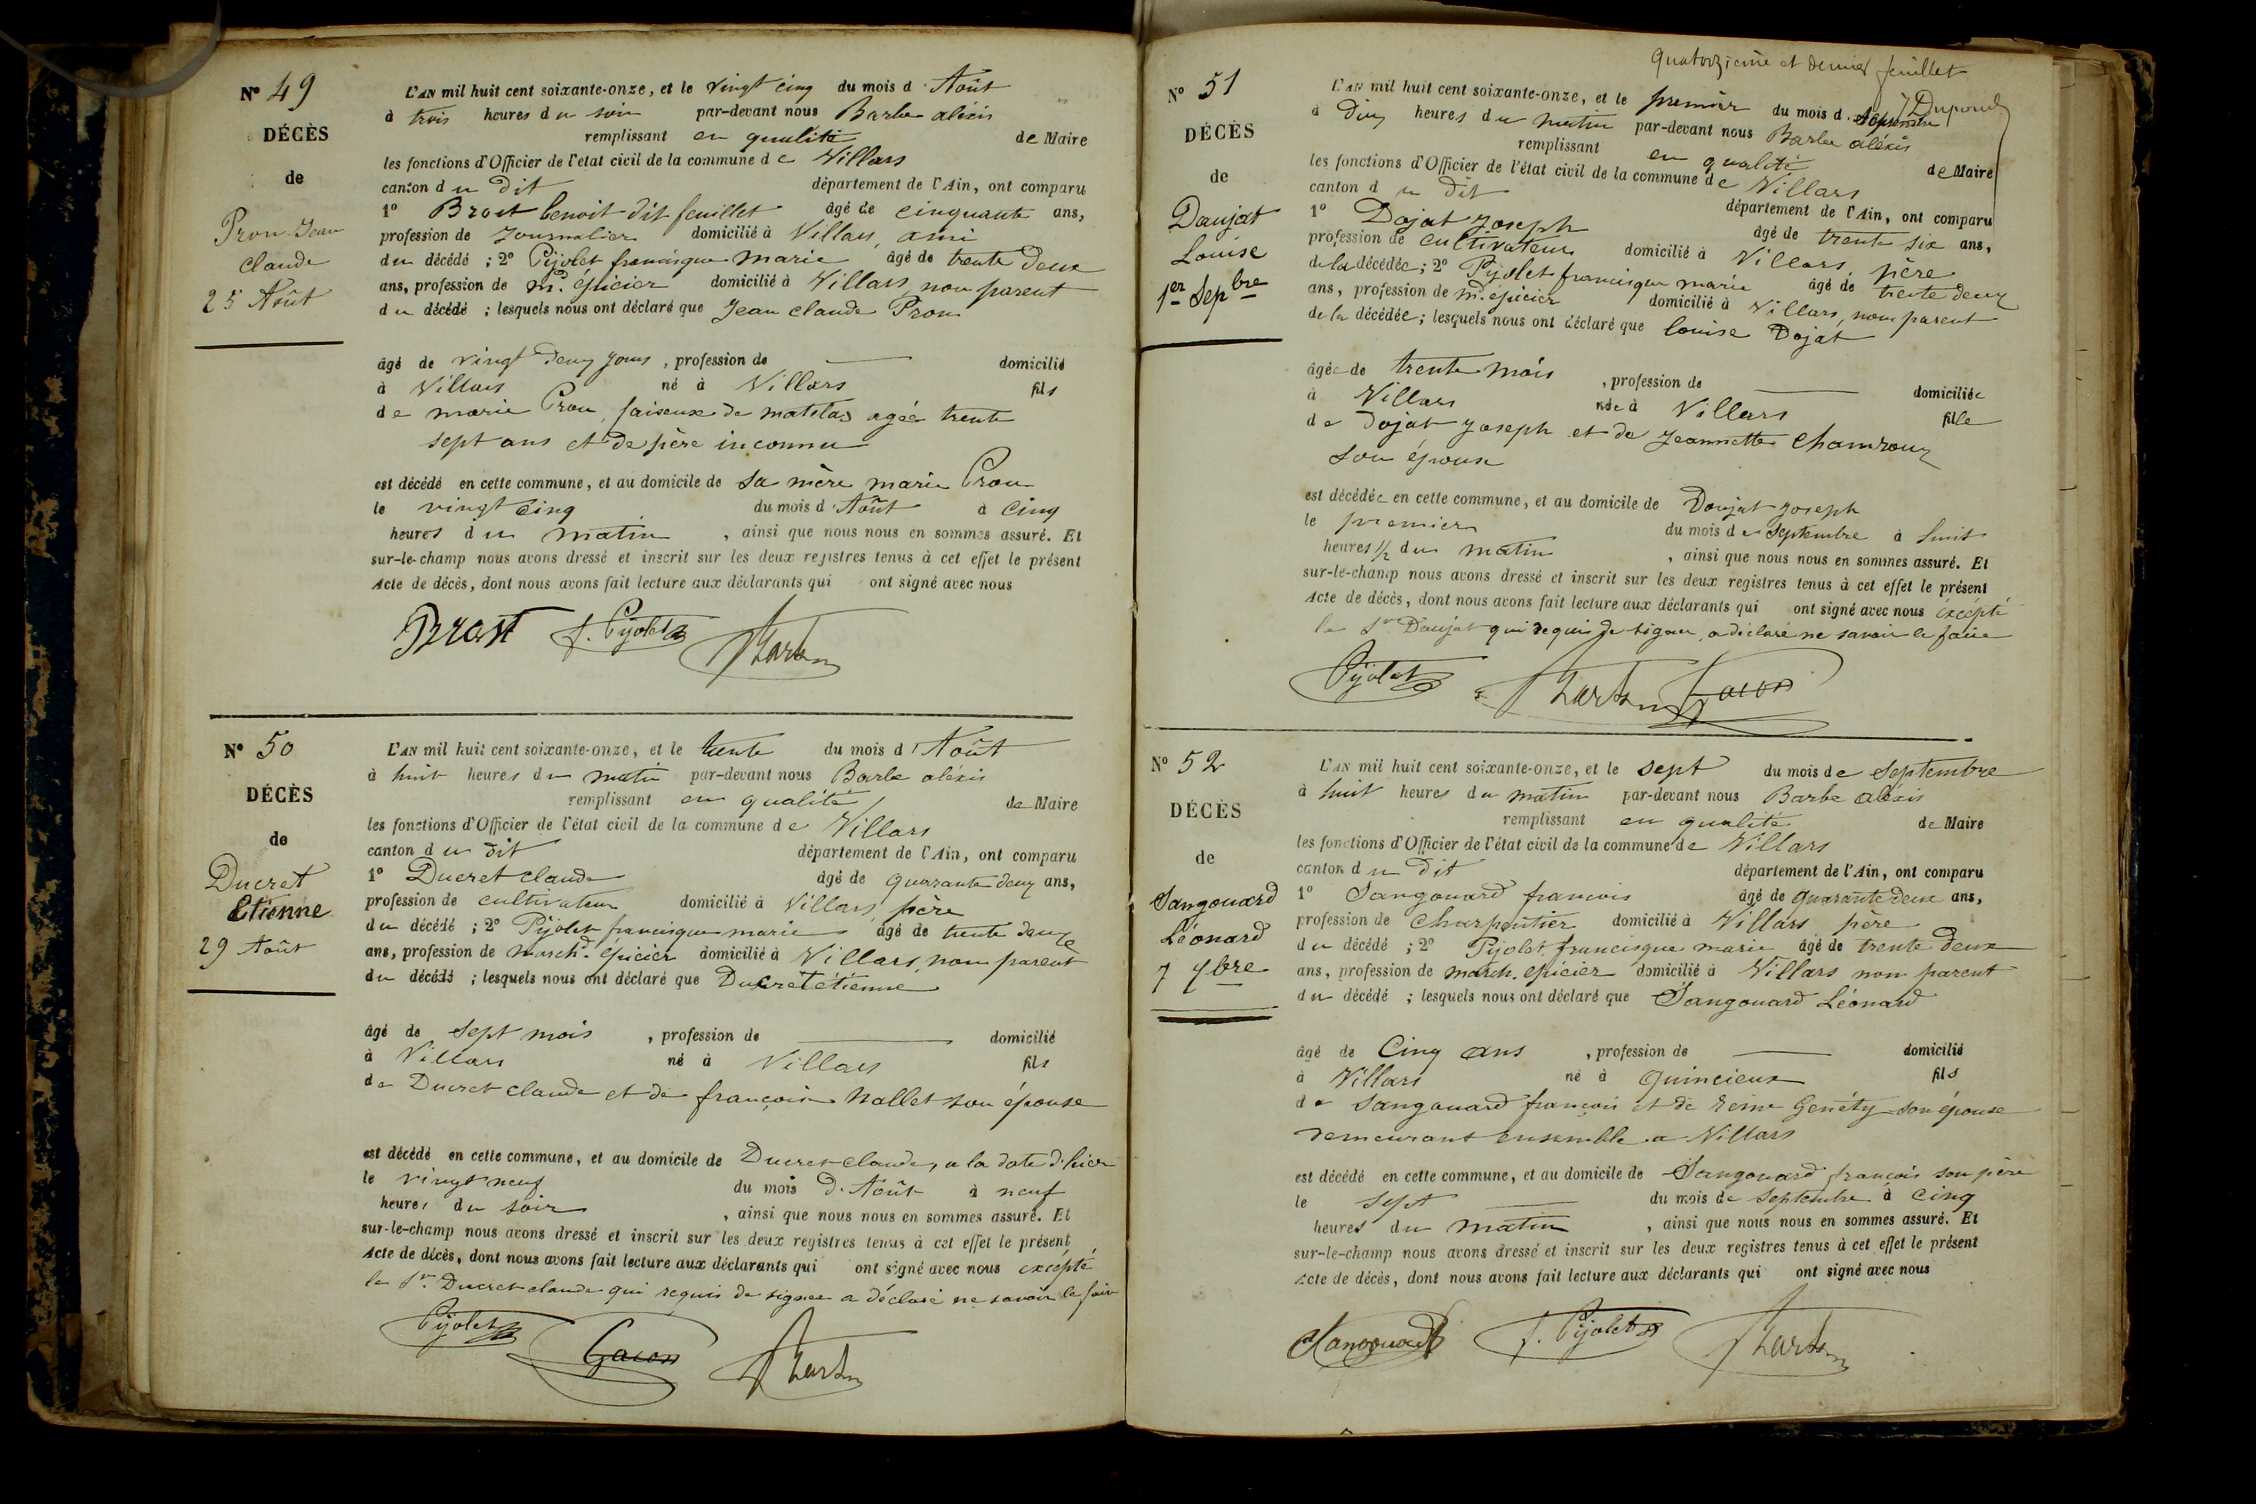 Nº 49
DÉCÈS
de
Prou Jean
Claude
25 Août
L'AN mil huit cent soixante-onze, et le vingt cinq du mois d'Août
à trois heures du soir par-devant nous Barbe aléxis
remplissant en qualité de Maire
les fonctions d'Officier de l'état civil de la commune de Villars
canton du dit département de l'Ain, ont comparu
1º Brost benoit dit feuillet âgé de cinquante ans,
profession de Journalier domicilié à Villars, ami
du décédé ; 2º Pijolet francisque marie âgé de trente deux
ans, profession de md. épicier domicilié à Villars, non parent
du décédé ; lesquels nous ont déclaré que Jean claude Prou
âgé de vingt deux jours, profession de — domicilié
à Villars né à Villars fils
de marie Prou, faiseuse de matelas agée trente
sept ans et de père inconnu
est décédé en cette commune, et au domicile de sa mère marie Prou
le vingt cinq du mois d'Août à cinq
heures du matin, ainsi que nous nous en sommes assuré. Et
sur-le-champ nous avons dressé et inscrit sur les deux registres tenus à cet effet le présent
Acte de décès, dont nous avons fait lecture aux déclarants qui ont signé avec nous
Brost f. Pijolet Barbe
Nº 50
DÉCÈS
de
Ducret
Etienne
29 Août
L'AN mil huit cent soixante-onze, et le trente du mois d'Août
à huit heures du matin par-devant nous Barbe aléxis
remplissant en qualité de Maire
les fonctions d'Officier de l'état civil de la commune de Villars
canton du dit département de l'Ain, ont comparu
1º Ducret claude âgé de quarante deux ans,
profession de cultivateur domicilié à Villars, père
du décédé ; 2º Pijolet francisque marie âgé de trente deux
ans, profession de march.d épicier domicilié à Villars, non parent
du décédé ; lesquels nous ont déclaré que Ducret étienne
âgé de sept mois, profession de — domicilié
à Villars né à Villars fils
de Ducret claude et de françoise Nallet son épouse
est décédé en cette commune, et au domicile de Ducret claude, a la date d'hier
le vingt neuf du mois d'Août à neuf
heures du soir, ainsi que nous nous en sommes assuré. Et
sur-le-champ nous avons dressé et inscrit sur les deux registres tenus à cet effet le présent
Acte de décès, dont nous avons fait lecture aux déclarants qui ont signé avec nous excépté
le Sr. Ducret claude qui requis de signer a déclaré ne savoir le faire
Pijolet Gacon Barbe
quatorzième et dernier feuillet
Dupond
Nº 51
DÉCÈS
de
Daujat
Louise
1er Sepbre
L'AN mil huit cent soixante-onze, et le premier du mois d. Septembre
à Dix heures du matin par-devant nous Barbe aléxis
remplissant en qualité de Maire
les fonctions d'Officier de l'état civil de la commune de Villars
canton du dit département de l'Ain, ont comparu
1º Dojat Joseph âgé de trente six ans,
profession de cultivateur domicilié à Villars, père
de la décédée ; 2º Pijolet francisque marie âgé de trente deux
ans, profession de md. épicier domicilié à Villars, non parent
de la décédée ; lesquels nous ont déclaré que louise Dojat
âgée de trente mois, profession de — domiciliée
à Villars née à Villars fille
de Dojat Joseph et de Jeannette Chamroux
son épouse
est décédée en cette commune, et au domicile de Doujat Joseph
le premier du mois de Septembre à huit
heures 1/2 du matin, ainsi que nous nous en sommes assuré. Et
sur-le-champ nous avons dressé et inscrit sur les deux registres tenus à cet effet le présent
Acte de décès, dont nous avons fait lecture aux déclarants qui ont signé avec nous excépté
le Sre Daujat qui requis de signer, a déclaré ne savoir le faire
Pijolet Barbe Gacon
Nº 52
DÉCÈS
de
Sangouard
Léonard
7 7bre
L'AN mil huit cent soixante-onze, et le sept du mois de Septembre
à huit heures du matin par-devant nous Barbe aléxis
remplissant en qualité de Maire
les fonctions d'Officier de l'état civil de la commune de Villars
canton du dit département de l'Ain, ont comparu
1º Sangouard francois âgé de quarante deux ans,
profession de Charpentier domicilié à Villars père
du décédé ; 2º Pijolet francisque marie âgé de trente deux
ans, profession de march. epicier domicilié à Villars non parent
du décédé ; lesquels nous ont déclaré que Sangouard Léonard
âgé de Cinq ans, profession de — domicilié
à Villars né à Quincieux fils
de Sangouard françois et de reine Genéty son épouse
demeurant ensemble a Villars
est décédé en cette commune, et au domicile de Sangouard françois son père
le sept du mois de Septembre à Cinq
heures du matin, ainsi que nous nous en sommes assuré. Et
sur-le-champ nous avons dressé et inscrit sur les deux registres tenus à cet effet le présent
Acte de décès, dont nous avons fait lecture aux déclarants qui ont signé avec nous
Sangouard f. Pijolet Barbe